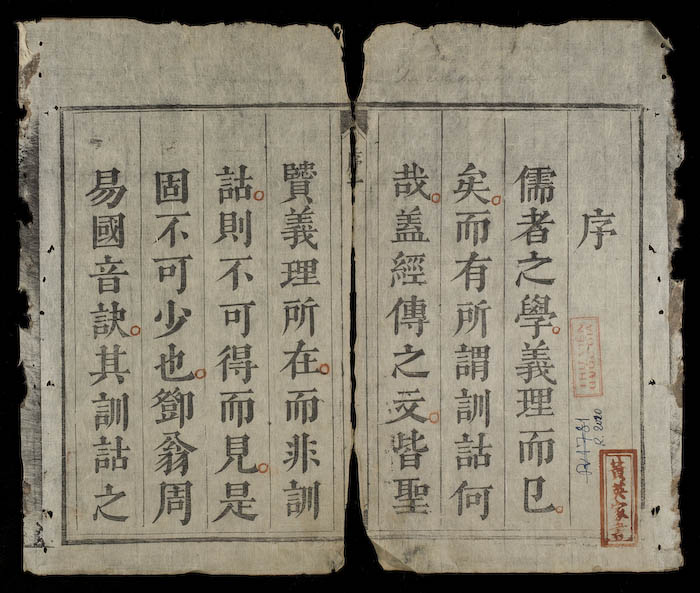 序
儒者之學義理而已
矣而有所謂訓詁何
哉蓋經傳之文皆聖
序一
賢義理所在而非訓
詁則不可得而見是
固不可少也鄧翁周
易國音訣其訓詁之
R. 2020